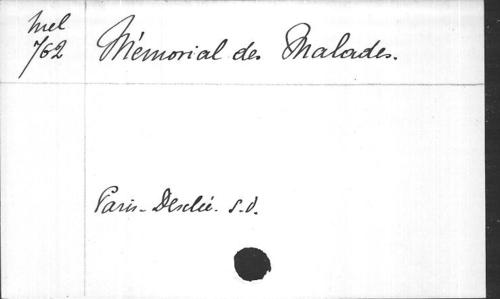 Mel
762
Mémorial des Malades.
Paris - Desclée. s.d.